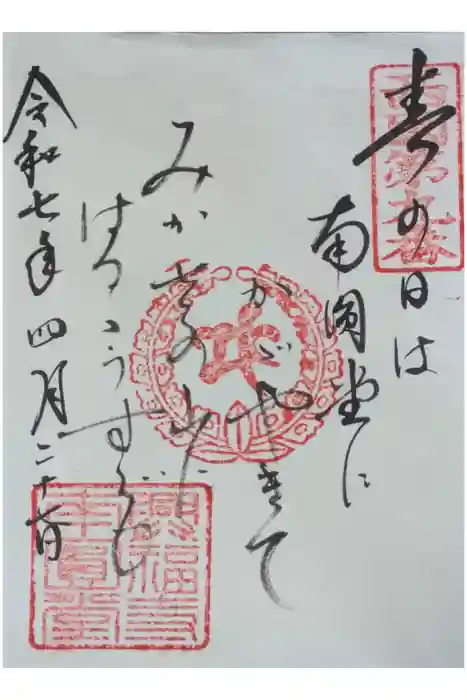 西国第九番
春の日は
南圓堂に
かゞやきて
みかさの山に
はるゝうすぐも
令和七年四月二十七日
興福寺
南圓堂